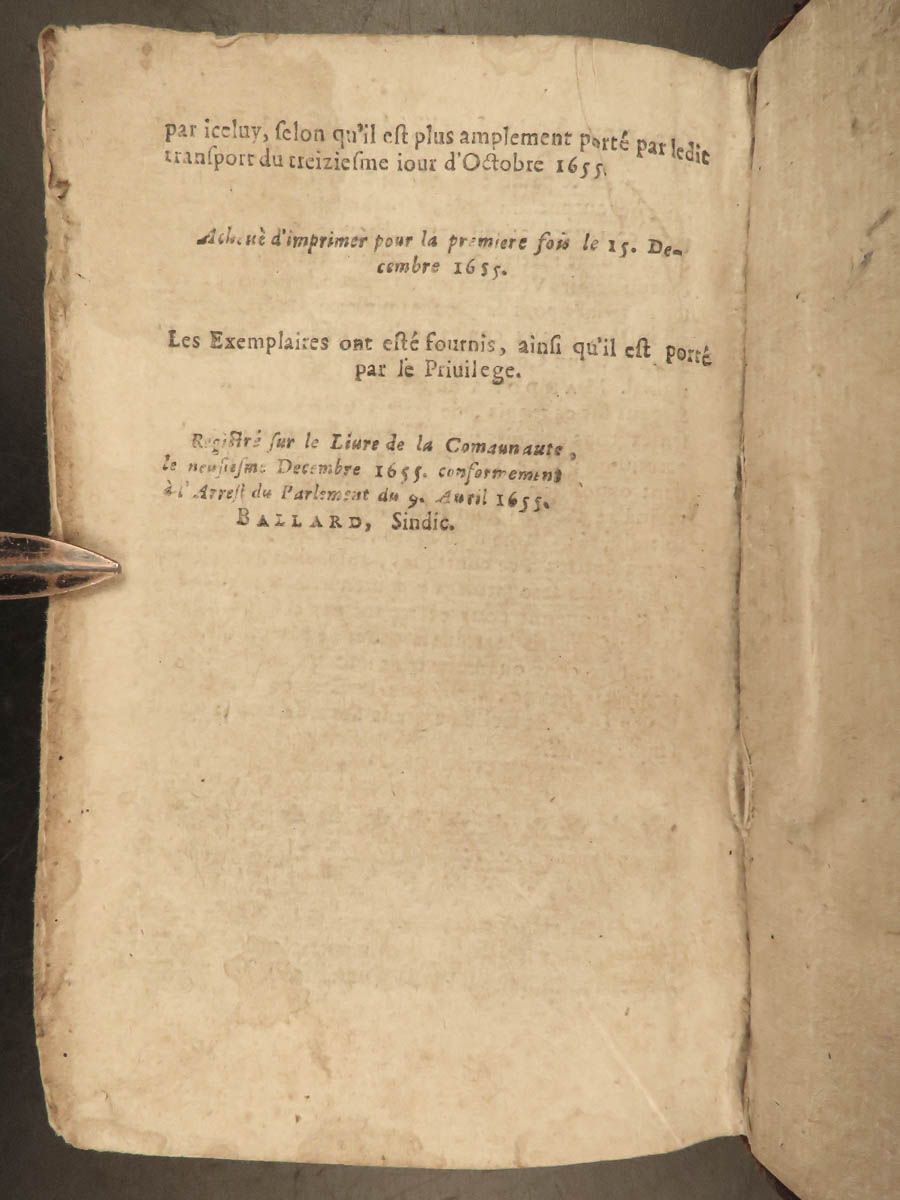 par iceluy, ſelon qu'il eſt plus amplement porté par ledit
tranſport du treizieſme iour d'Octobre 1655.
Acheué d'imprimer pour la premiere fois le 15. De-
cembre 1655.
Les Exemplaires ont eſté fournis, ainſi qu'il eſt porté
par le Priuilege.
Regiſtré ſur le Liure de la Comaunaute,
le neufieſme Decembre 1655. conformement
à l'Arreſt du Parlement du 9. Auril 1655.
BALLARD, Sindic.